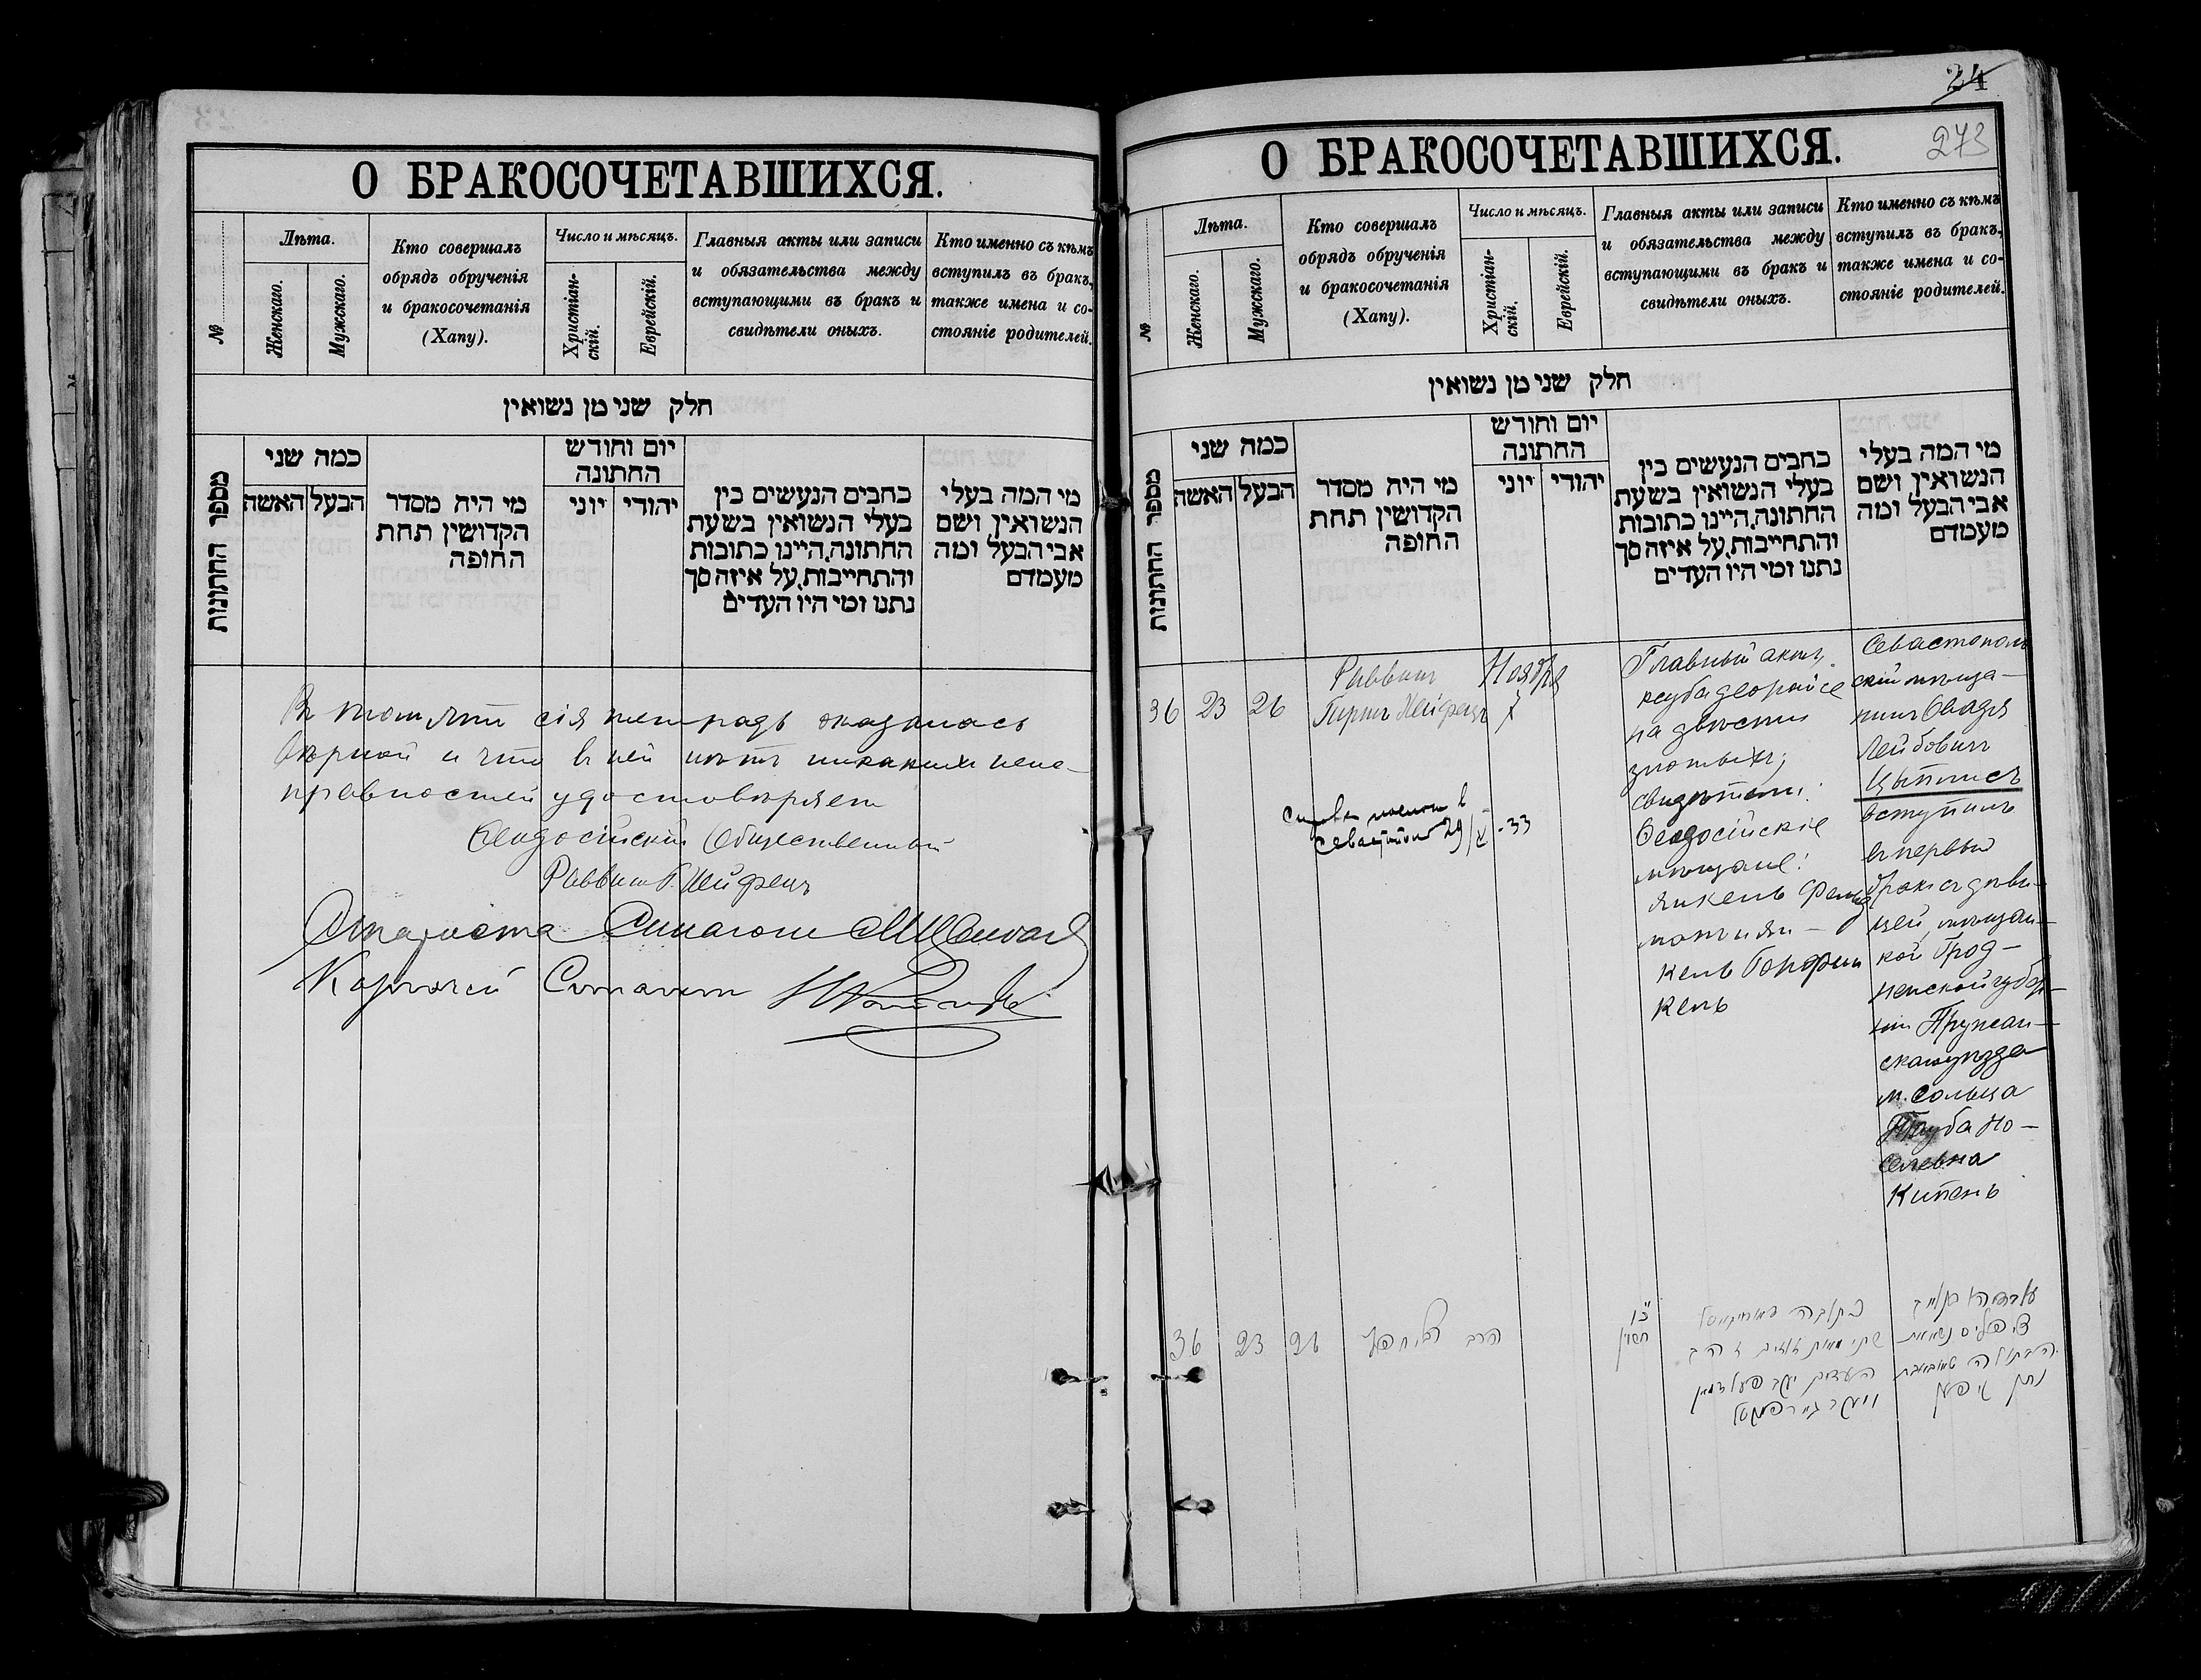 О БРАКОСОЧЕТАВШИХСЯ.
№
Лѣта.
Женскаго.
Мужскаго.
Кто совершалъ
обрядъ обрученія
и бракосочетанія
(Хапу).
Число и мѣсяцъ.
Христіан-
скій.
Еврейскій.
Главныя акты или записи
и обязательства между
вступающими въ бракъ и
свидѣтели оныхъ.
Кто именно съ кѣмъ
вступилъ въ бракъ,
также имена и со-
стояніе родителей.
חלק שני מן נשואין
מספר החתונות
כמה שני
האשה
הבעל
מי היה מסדר
הקדושין תחת
החופה
יום וחודש
החתונה
יוני
יהודי
כתבים הנעשים בין
בעלי הנשואין בשעת
החתונה, היינו כתובות
והתחייבות, על איזה סך
נתנו ומי היו העדים
מי המה בעלי
הנשואין ושם
אבי הבעל ומה
מעמדם
Въ томъ что сія тетрадь оказалась
вѣрной и что въ ней нѣтъ никакихъ неис-
правностей удостовѣряетъ
Ѳеодосійскій Общественный
Раввинъ Г. Нейфецъ
Староста Синагоги
24
273
О БРАКОСОЧЕТАВШИХСЯ.
№
Лѣта.
Женскаго.
Мужскаго.
Кто совершалъ
обрядъ обрученія
и бракосочетанія
(Хапу).
Число и мѣсяцъ.
Христіан-
скій.
Еврейскій.
Главныя акты или записи
и обязательства между
вступающими въ бракъ и
свидѣтели оныхъ.
Кто именно съ кѣмъ
вступилъ въ бракъ,
также имена и со-
стояніе родителей.
חלק שני מן נשואין
מספר החתונות
כמה שני
האשה
הבעל
מי היה מסדר
הקדושין תחת
החופה
יום וחודש
החתונה
יוני
יהודי
כתבים הנעשים בין
בעלי הנשואין בשעת
החתונה, היינו כתובות
והתחייבות, על איזה סך
נתנו ומי היו העדים
מי המה בעלי
הנשואין ושם
אבי הבעל ומה
מעמדם
36
23
26
Раввинъ
Гиршъ Нейфецъ
Ноября
7
Главный актъ
ксуба деорайсе
на двѣсти
злотыхъ;
свидѣтели:
Ѳеодосійскіе
мѣщане:
Янкель Фельд
манъ и Ян-
кель Гарфин
кель
Севастополь
скій мѣща-
нинъ Овадія
Лейбовичъ
Цыписъ
вступилъ
въ первый
бракъ съ дѣви-
цей, мѣщан-
кой Грод-
ненской губер-
ніи Пружан-
скаго уѣзда
м. Сольца
Тауба Но-
селевна
Кипень
29/XI-33
36
23
26
הרב
חשון
כתובה דאורייתא
שתי מאות
העדים יעקב פעלדמאן